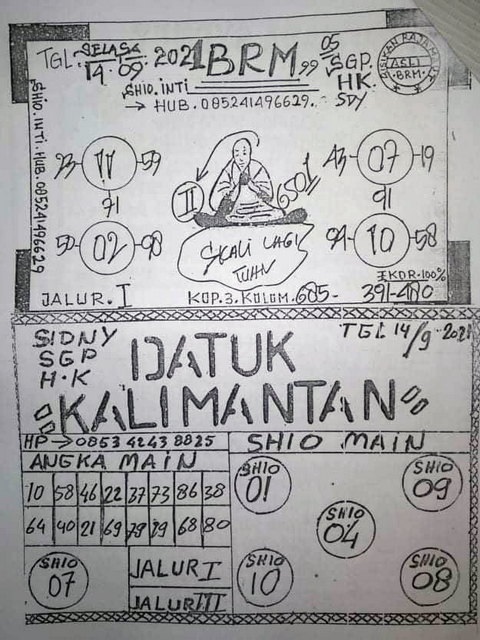 TGL. SELASA 14.09. 2021 BRM 99 05
SGP.
HK.
SDY
BISIKAN RAJA
ASLI
BRM
SHIO. INTI
→ HUB. 085241496629.
SHIO. INTI. HUB. 085241496629
23 11 59
71
50 02 98
II
6501
43 07 19
91
94 10 58
SKALI LAGI
TUHAN
EKOR. 100%
JALUR. I KOP. 3. KOLOM. 605- 391-400
SIDNY
SGP
H.K
TGL 14/9-2021
DATUK
KALIMANTAN
HP → 0853 4243 8825
SHIO MAIN
ANGKA MAIN
10 58 46 22 37 73 86 38
64 40 21 69 79 29 68 80
SHIO
01
SHIO
09
SHIO
04
SHIO
10
SHIO
08
SHIO
07
JALUR I
JALUR III